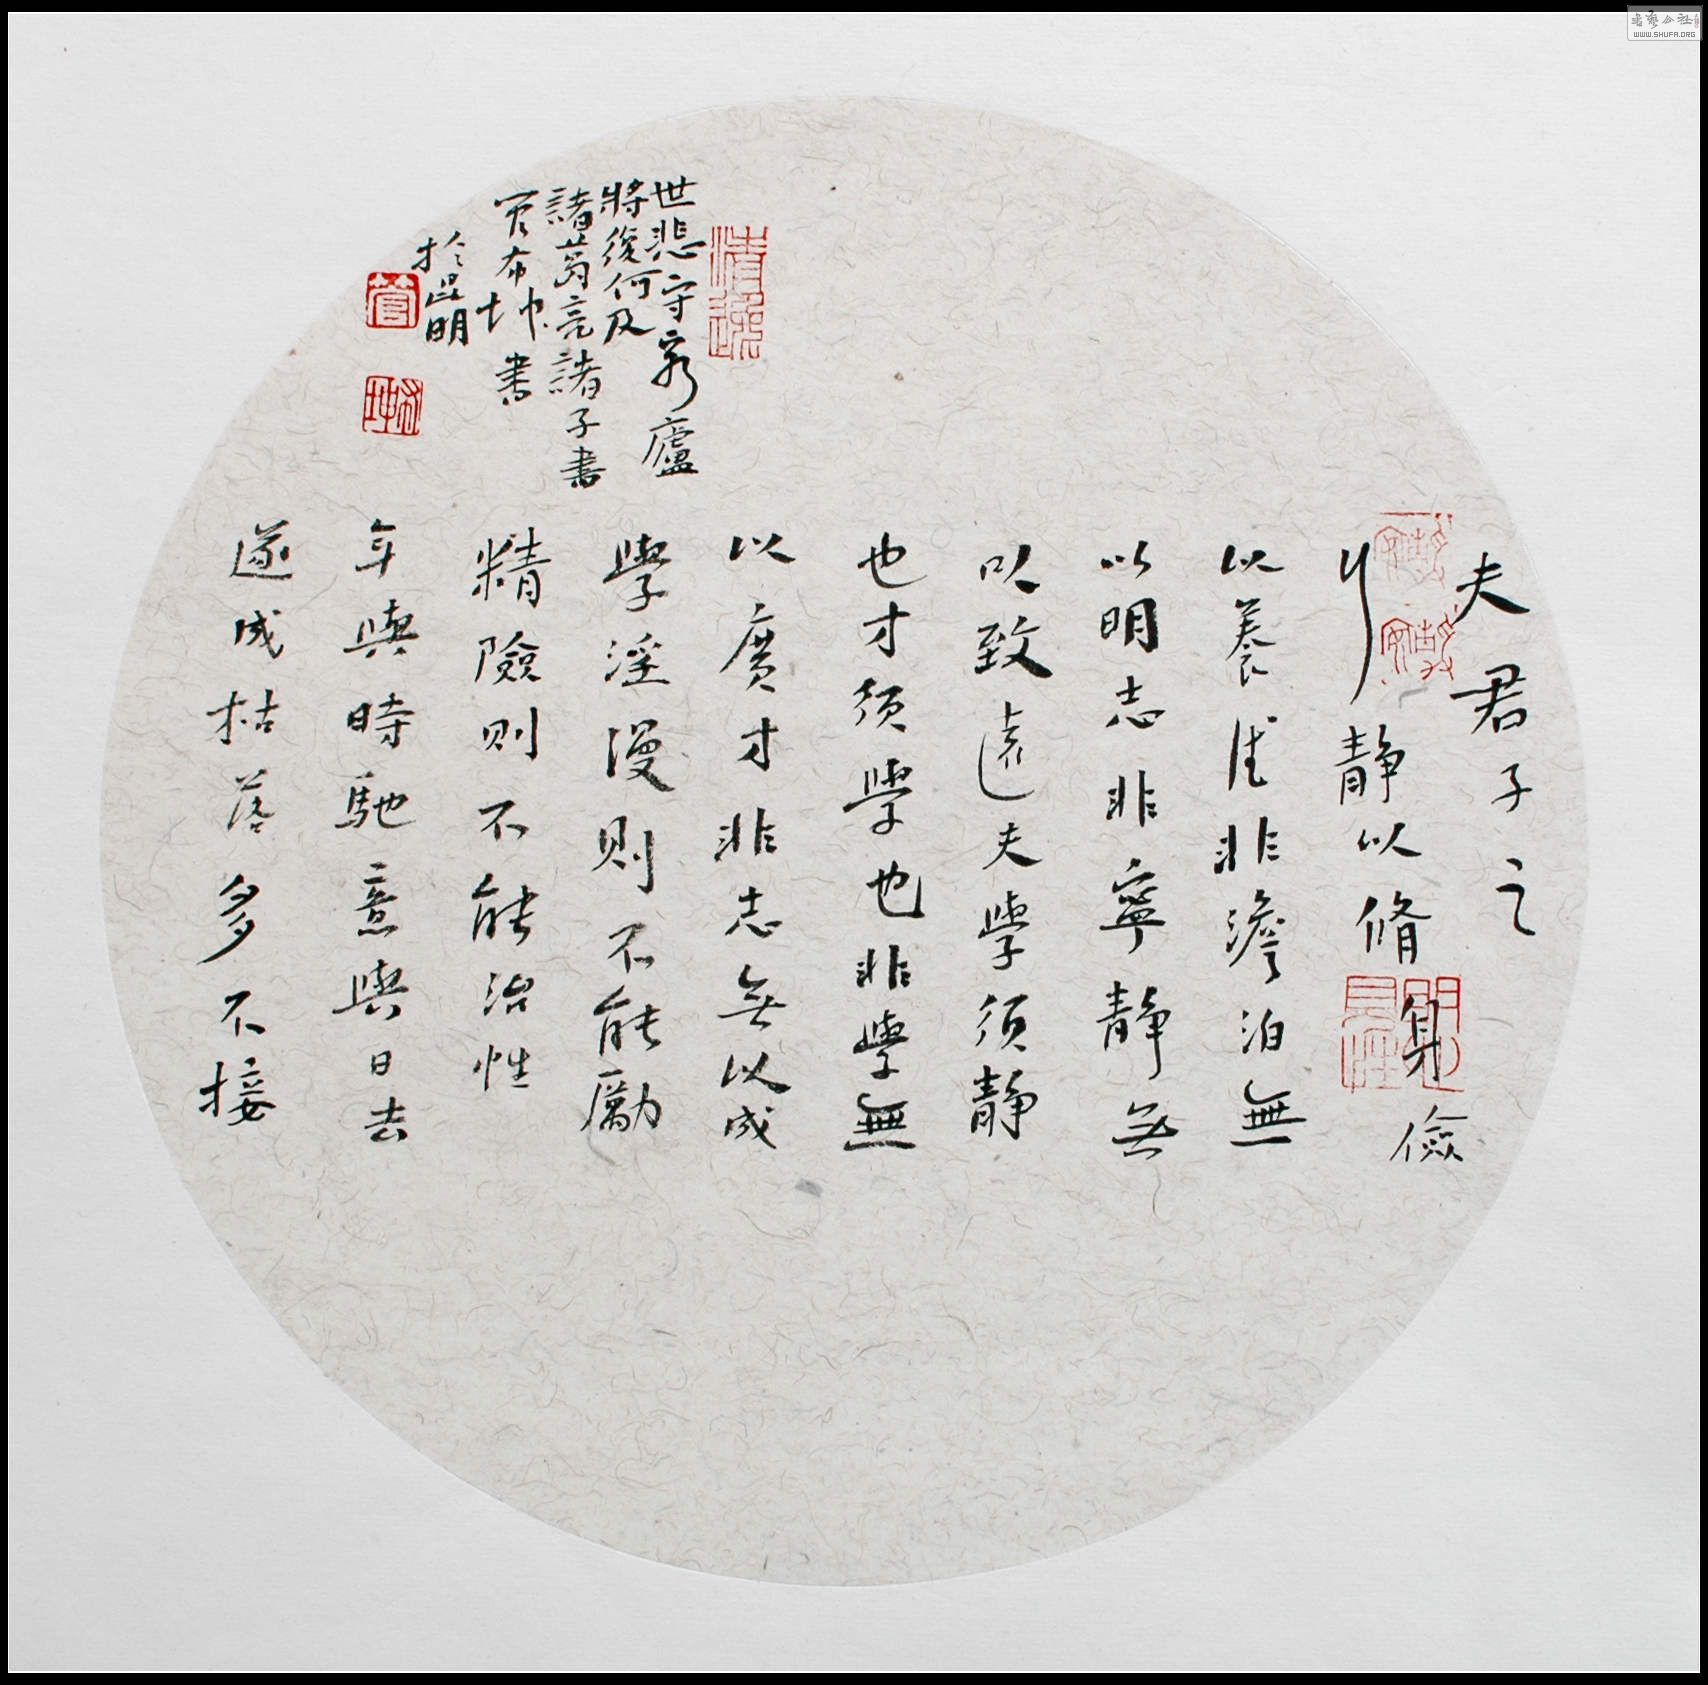 夫君子之
行静以脩身儉
以養德非澹泊無
以明志非寧静無
以致遠夫學須静
也才須學也非學無
以廣才非志無以成
學淫漫則不能勵
精險則不能治性
年與時馳意與日去
遂成枯落多不接
世悲守窮廬
將復何及
諸葛亮諸子書
書
於昆明
清逸
管
書藝公社
WWW.SHUFA.ORG